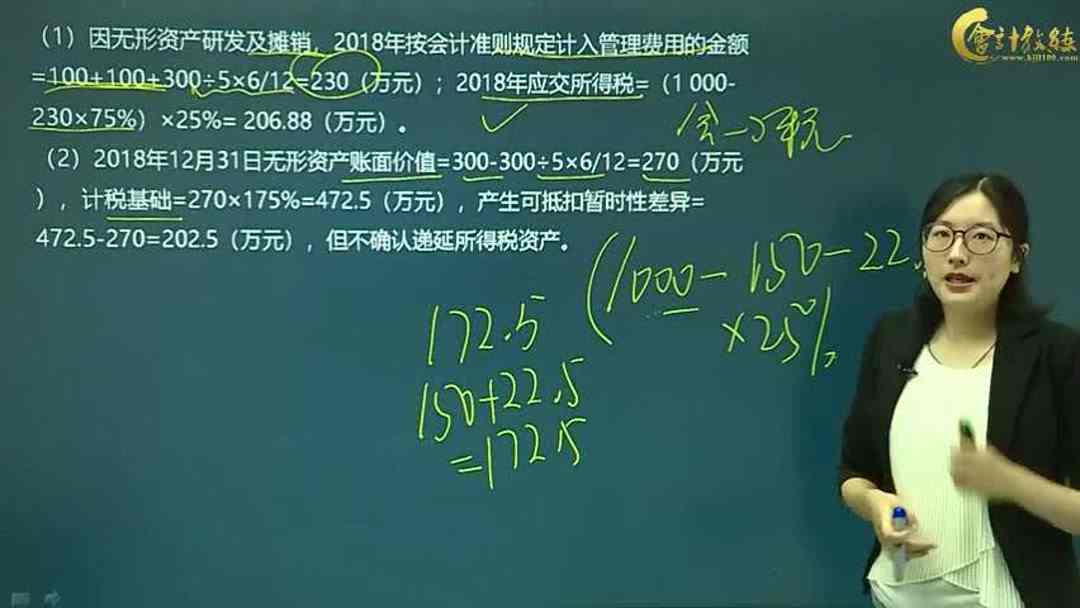 （1）因无形资产研发及摊销，2018年按会计准则规定计入管理费用的金额
=100+100+300÷5×6/12=230（万元）；2018年应交所得税=（1 000-
230×75%）×25%= 206.88（万元）。
（2）2018年12月31日无形资产账面价值=300-300÷5×6/12=270（万元
），计税基础=270×175%=472.5（万元），产生可抵扣暂时性差异=
472.5-270=202.5（万元），但不确认递延所得税资产。
(1000-150-22.
×25%
172.5
150+22.5
=172.5
會計教練
www.kjjl100.com